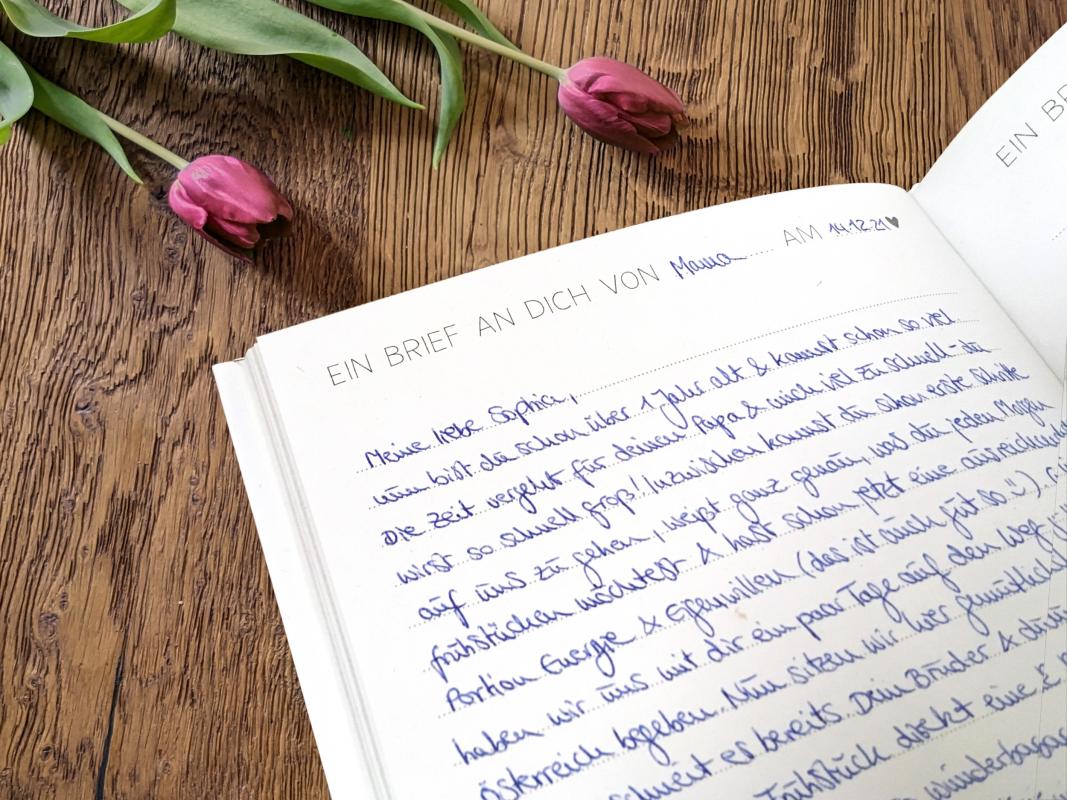 EIN BRIEF AN DICH VON Mama AM 14.12.21♥
Meine liebe Sophia,
nun bist du schon über 1 Jahr alt & kannst schon so viel
Die Zeit vergeht für deinen Papa & mich viel zu schnell - du
wirst so schnell groß! Inzwischen kannst du schon erste Schritte
auf uns zu gehen, weißt ganz genau, was du jeden Morgen
frühstücken möchtest & hast schon jetzt eine
Portion Energie & Eigenwillen (das ist auch gut so :))
haben wir uns mit dir ein paar Tage auf den Weg
Österreich begeben. Nun sitzen wir hier
schneit es bereits. Dein Bruder &
Frühstück direkt eine
EIN